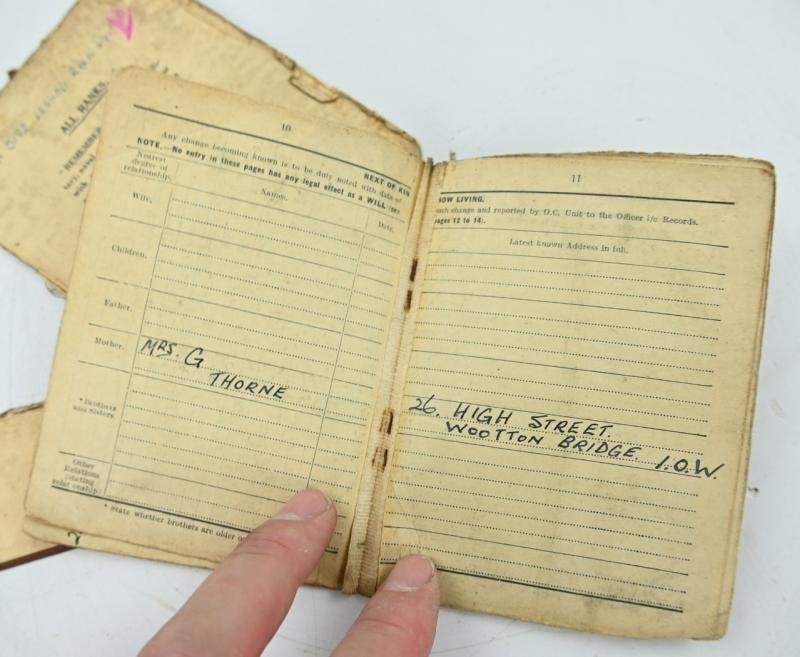 ALL RANKS
10
Any change becoming known is to be duly noted with date of
NEXT OF KIN
NOTE.—No entry in these pages has any legal effect as a WILL (see
Nearest degree of relationship.
Names.
Date.
Wife.
Children.
Father.
Mother.
MRS. G
THORNE
* Brothers and Sisters.
Other Relations (stating relationship)
* State whether brothers are older or
11
NOW LIVING.
such change and reported by O.C. Unit to the Officer i/c Records.
pages 12 to 14).
Latest known Address in full.
26. HIGH STREET.
WOOTTON BRIDGE I.O.W.